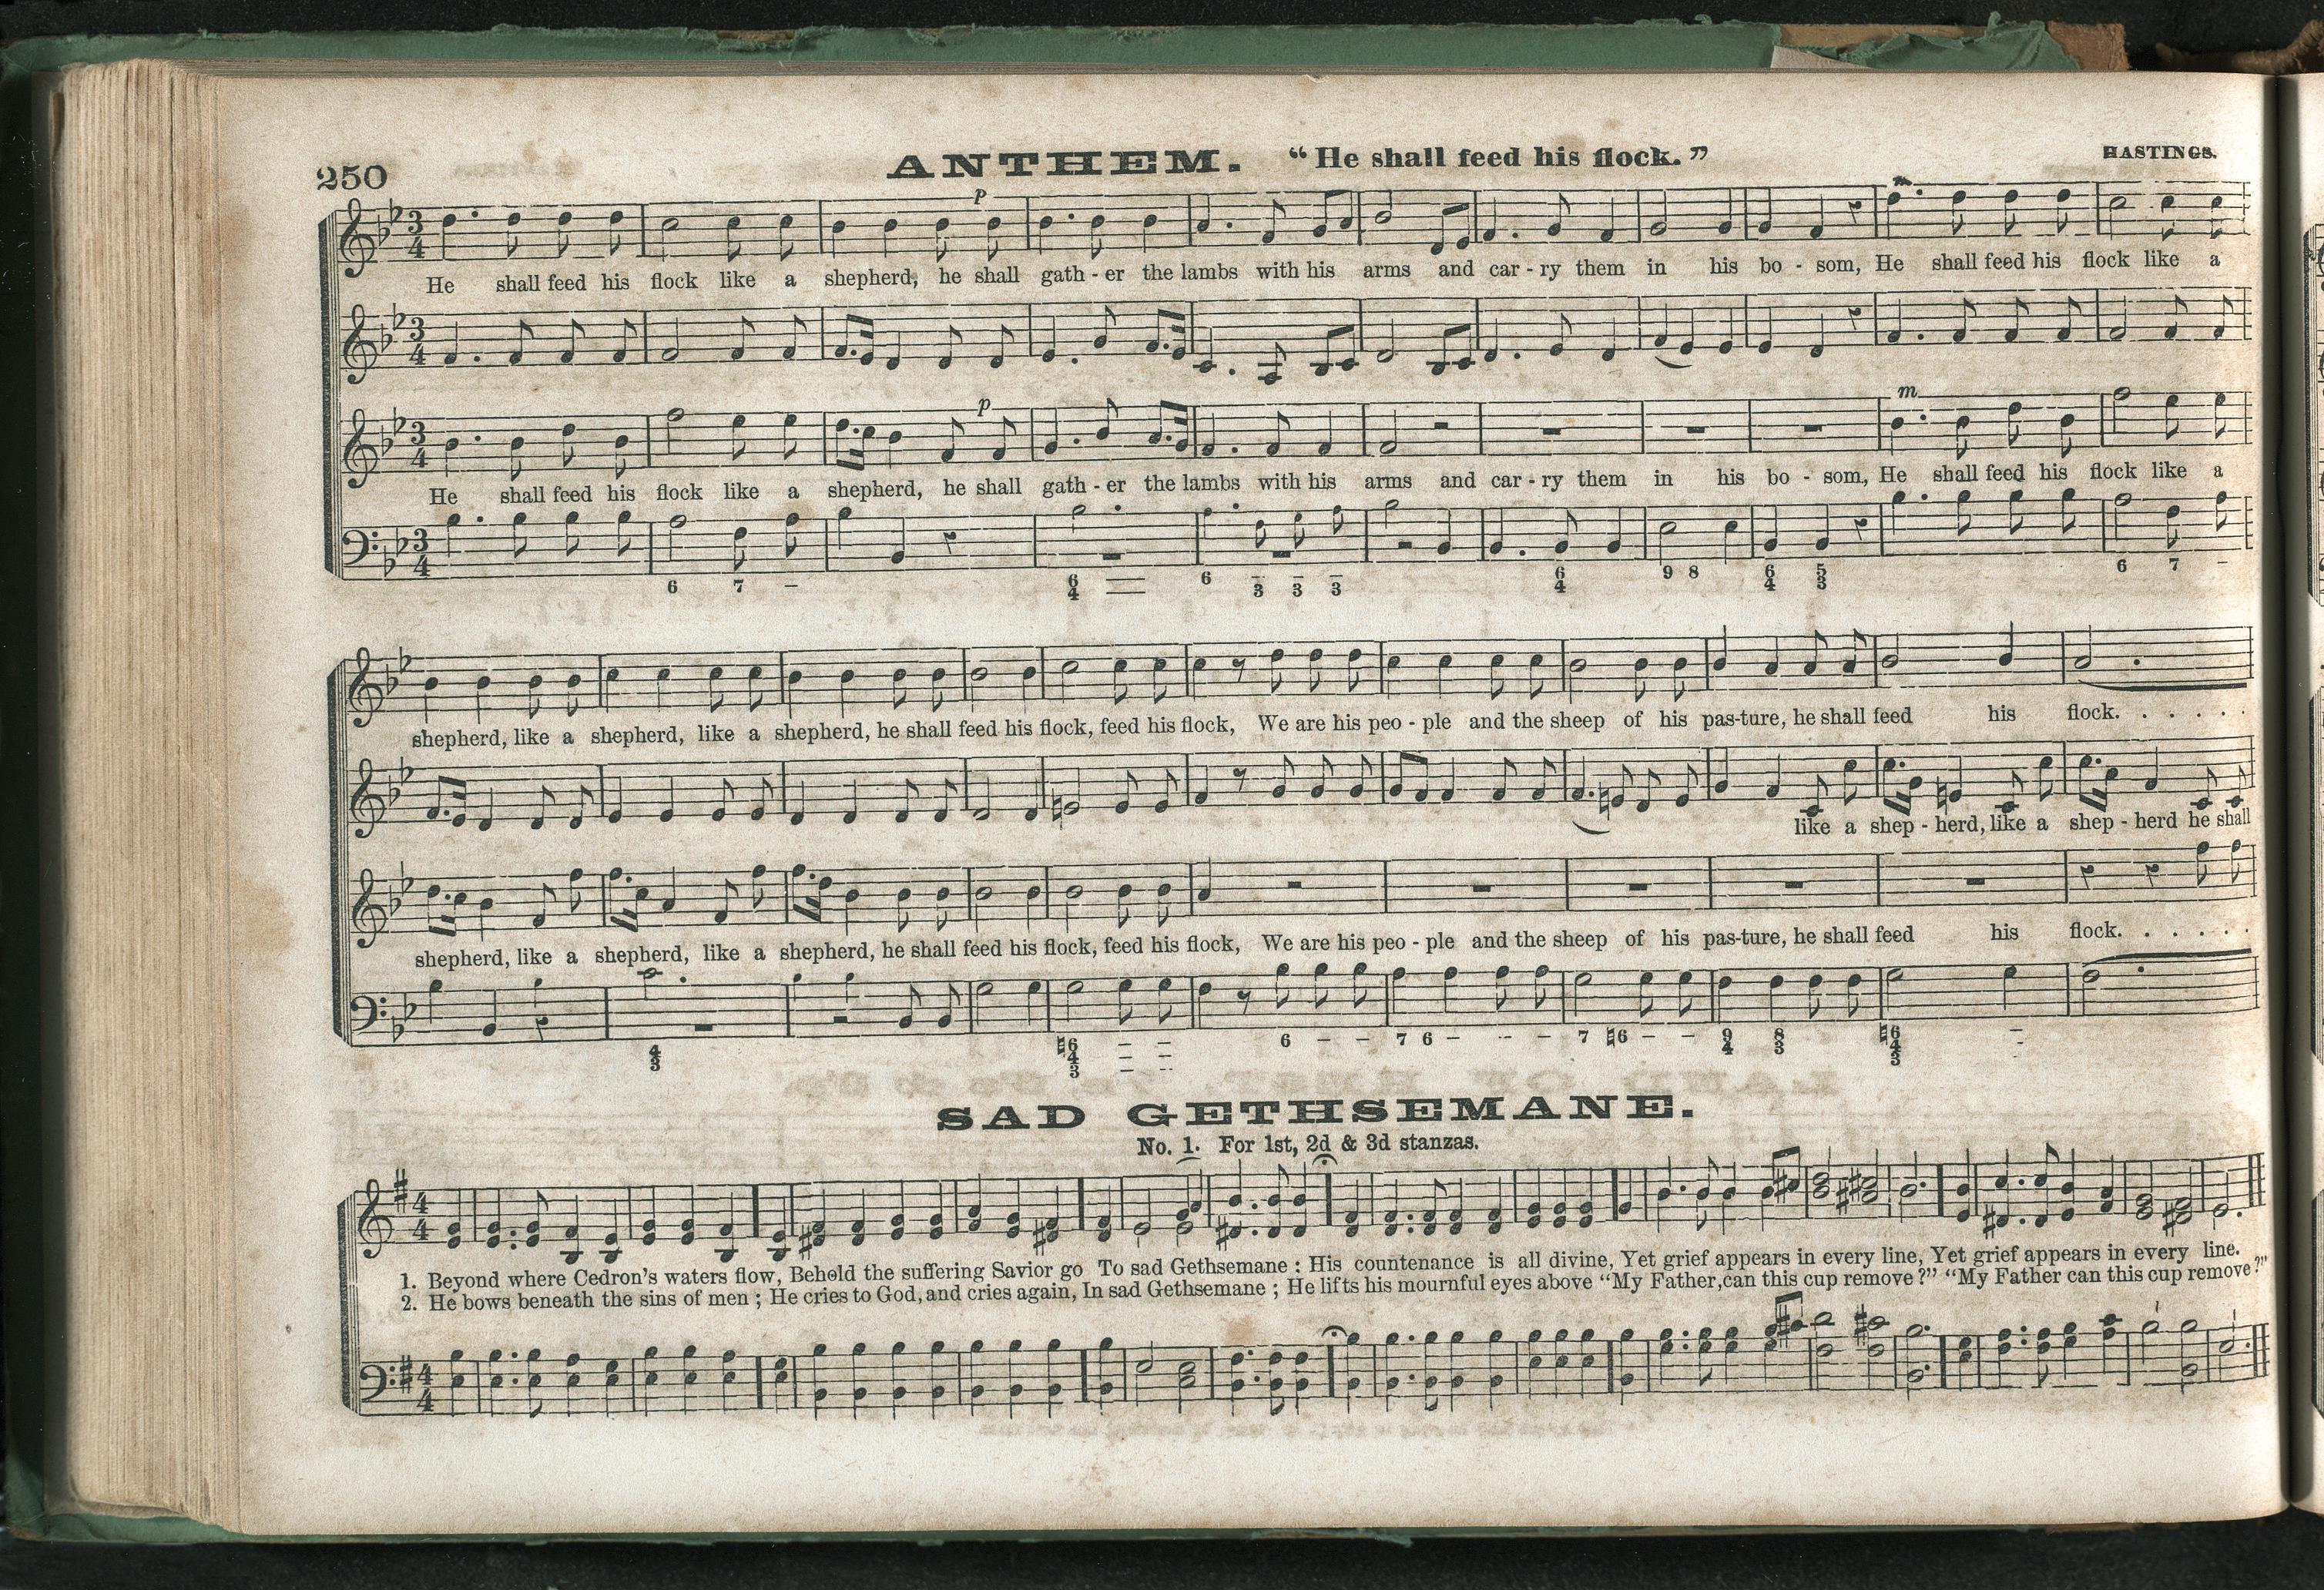 250
ANTHEM. “He shall feed his flock.”
HASTINGS.
3 4
p
m
He shall feed his flock like a shepherd, he shall gath - er the lambs with his arms and car - ry them in his bo - som, He shall feed his flock like a
3 4
p
m
3 4
He shall feed his flock like a shepherd, he shall gath - er the lambs with his arms and car - ry them in his bo - som, He shall feed his flock like a
3 4
6 7 – 6 4 6 3 3 3 6 4 9 8 6 4 5 3 6 7 –
shepherd, like a shepherd, like a shepherd, he shall feed his flock, feed his flock, We are his peo - ple and the sheep of his pas-ture, he shall feed his flock. . . . . .
like a shep - herd, like a shep - herd he shall
shepherd, like a shepherd, like a shepherd, he shall feed his flock, feed his flock, We are his peo - ple and the sheep of his pas-ture, he shall feed his flock. . . . . .
4 3 ♮6 4 3 6 – – 7 6 – – 7 ♮6 – – 9 4 8 3 ♮6 4 3
SAD GETHSEMANE.
No. 1. For 1st, 2d & 3d stanzas.
4 4
1. Beyond where Cedron's waters flow, Behold the suffering Savior go To sad Gethsemane : His countenance is all divine, Yet grief appears in every line, Yet grief appears in every line.
2. He bows beneath the sins of men ; He cries to God, and cries again, In sad Gethsemane ; He lifts his mournful eyes above “My Father,can this cup remove ?” “My Father can this cup remove ?”
4 4